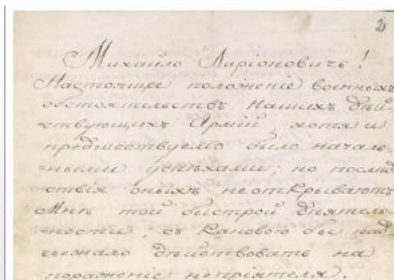 2
Михайло Ларіоновичь!
Настоящее положеніе военныхъ
обстоятельствъ Нашихъ дѣй-
ствующихъ Армій хотя и
предшествуемо было началь-
ными успѣхами; но послѣд-
ствія оныхъ не открываютъ
Мнѣ той быстрой дѣятель-
ности, съ каковою бы над-
лежало дѣйствовать на
пораженіе непріятеля.